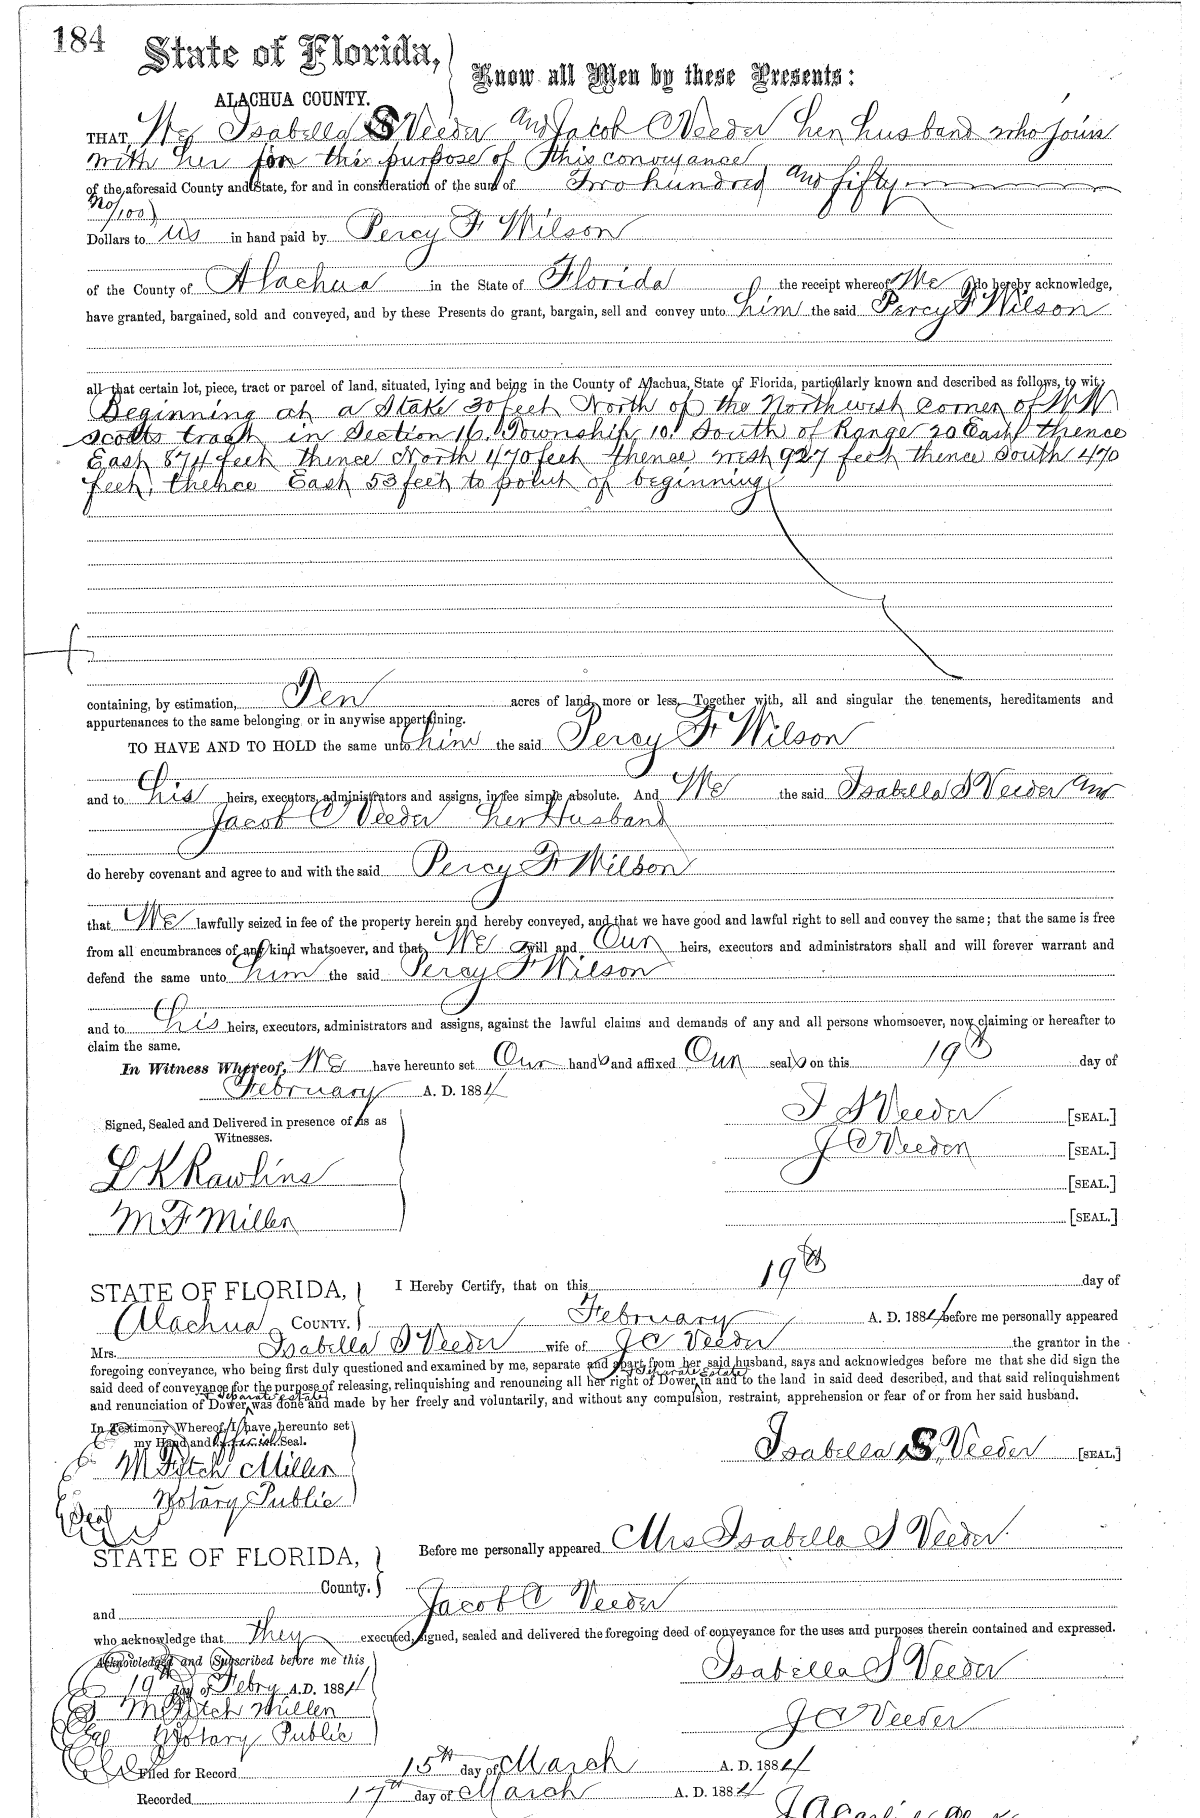 184
State of Florida,
ALACHUA COUNTY.
Know all Men by these Presents:
THAT, We Isabella S Veeder and Jacob C Veeder her husband who joins
with her for the purpose of this conveyance
of the aforesaid County and State, for and in consideration of the sum of Two hundred and fifty
no/100)
Dollars to us in hand paid by Percy F Wilson
of the County of Alachua in the State of Florida the receipt whereof We do hereby acknowledge,
have granted, bargained, sold and conveyed, and by these Presents do grant, bargain, sell and convey unto him the said Percy F Wilson
all that certain lot, piece, tract or parcel of land, situated, lying and being in the County of Alachua, State of Florida, particularly known and described as follows, to wit:
Beginning at a Stake 30 feet North of the Northwest corner of W W
Scotts tract in Section 16. Township 10. South of Range 20 East thence
East 874 feet thence North 470 feet thence west 927 feet thence South 470
feet, thence East 53 feet to point of beginning
containing, by estimation, Ten acres of land, more or less. Together with, all and singular the tenements, hereditaments and
appurtenances to the same belonging or in anywise appertaining.
TO HAVE AND TO HOLD the same unto him the said Percy F Wilson
and to his heirs, executors, administrators and assigns, in fee simple absolute. And We the said Isabella S Veeder and
Jacob C Veeder her Husband
do hereby covenant and agree to and with the said Percy F Wilson
that We lawfully seized in fee of the property herein and hereby conveyed, and that we have good and lawful right to sell and convey the same; that the same is free
from all encumbrances of any kind whatsoever, and that We will and Our heirs, executors and administrators shall and will forever warrant and
defend the same unto him the said Percy F Wilson
and to his heirs, executors, administrators and assigns, against the lawful claims and demands of any and all persons whomsoever, now claiming or hereafter to
claim the same.
In Witness Whereof, We have hereunto set Our hands and affixed Our seals on this 19th day of
February A. D. 1884
Signed, Sealed and Delivered in presence of us as
Witnesses.
I S Veeder [SEAL.]
J C Veeder [SEAL.]
L K Rawlins [SEAL.]
M F Miller [SEAL.]
STATE OF FLORIDA, I Hereby Certify, that on this 19th day of
Alachua COUNTY. February A. D. 1884 before me personally appeared
Mrs. Isabella S Veeder wife of J C Veeder the grantor in the
foregoing conveyance, who being first duly questioned and examined by me, separate and apart from her said husband, says and acknowledges before me that she did sign the
& Separate Estate
said deed of conveyance for the purpose of releasing, relinquishing and renouncing all her right of Dower in and to the land in said deed described, and that said relinquishment
& Separate estate
and renunciation of Dower was done and made by her freely and voluntarily, and without any compulsion, restraint, apprehension or fear of or from her said husband.
In Testimony Whereof, I have hereunto set
my Hand and official Seal.
Isabella S Veeder [SEAL.]
M Fitch Miller
Notary Public
Seal
STATE OF FLORIDA, Before me personally appeared Mrs Isabella S Veeder
County.
and Jacob C Veeder
who acknowledge that they executed, signed, sealed and delivered the foregoing deed of conveyance for the uses and purposes therein contained and expressed.
Acknowledged and Subscribed before me this
19th day of Febry A.D. 1884
Isabella S Veeder
M Fitch Miller
J C Veeder
Seal Notary Public
Filed for Record 15th day of March A. D. 1884
Recorded 17th day of March A. D. 1884